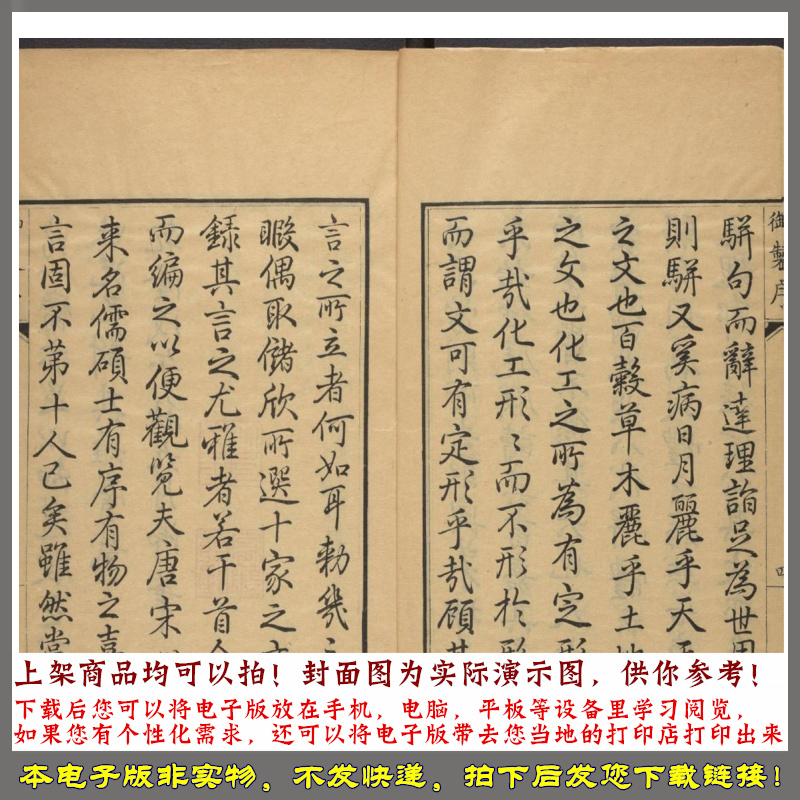 御製序
四
駢句而辭達理詣足為世用
則駢又奚病日月麗乎天天
之文也百穀草木麗乎土地
之文也化工之所為有定形
乎哉化工形〻而不形於形
而謂文可有定形乎哉顧其
言之所立者何如耳勅幾之
暇偶取儲欣所選十家之文
錄其言之尤雅者若干首
而編之以便觀覽夫唐宋以
来名儒碩士有序有物之嘉
言固不第十人已矣雖然嘗
上架商品均可以拍！封面图为实际演示图，供你参考！
下载后您可以将电子版放在手机，电脑，平板等设备里学习阅览，
如果您有个性化需求，还可以将电子版带去您当地的打印店打印出来
本电子版非实物，不发快递，拍下后发您下载链接！